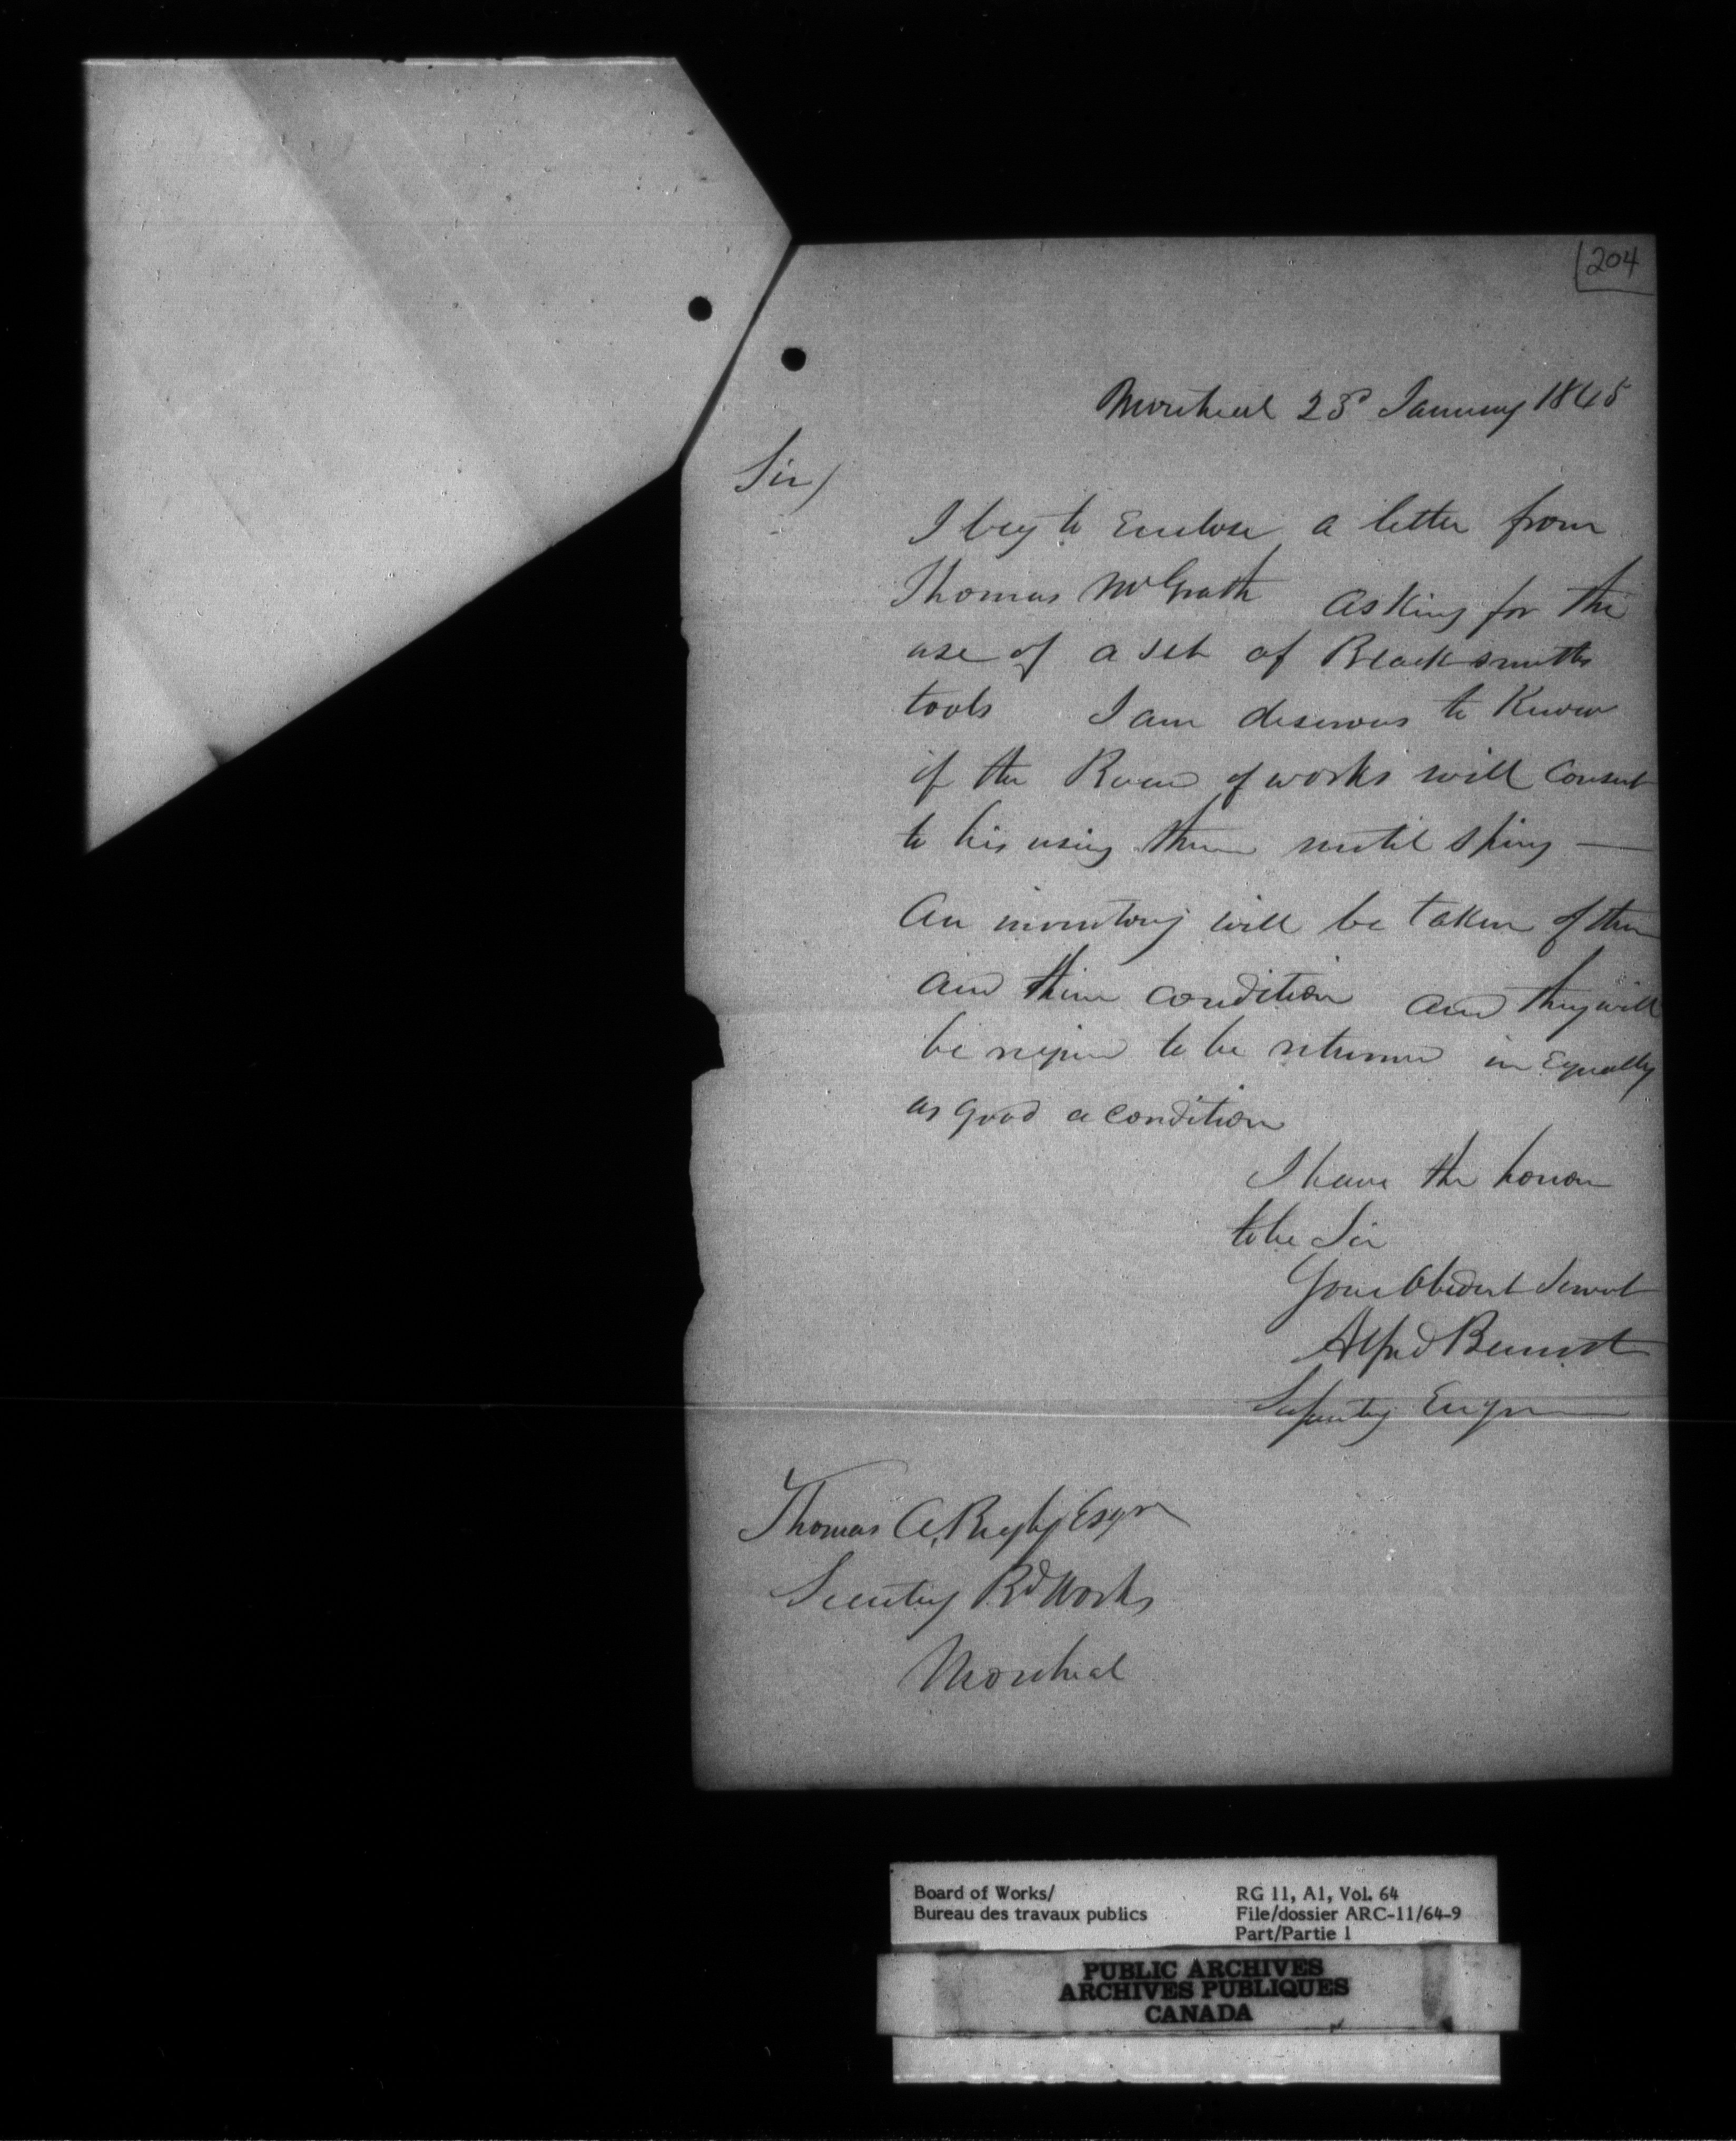 204
Montreal 23d January 1845
Sir/
I beg to Enclose a letter from
Thomas McGrath asking for the
use of a set of Blacksmiths
tools I am desirous to Know
if the Board of works will Consent
to his using them until Spring —
An inventory will be taken of them
and their condition and they will
be required to be returned in Equally
as good a condition
I have the honor
to be Sir
Your Obedient Servant
Alfred Barrett
Engr
Thomas A. Begly Esqr
Secretary Bd Works
Montreal
Board of Works/
Bureau des travaux publics
RG 11, A1, Vol. 64
File/dossier ARC-11/64-9
Part/Partie 1
PUBLIC ARCHIVES
ARCHIVES PUBLIQUES
CANADA